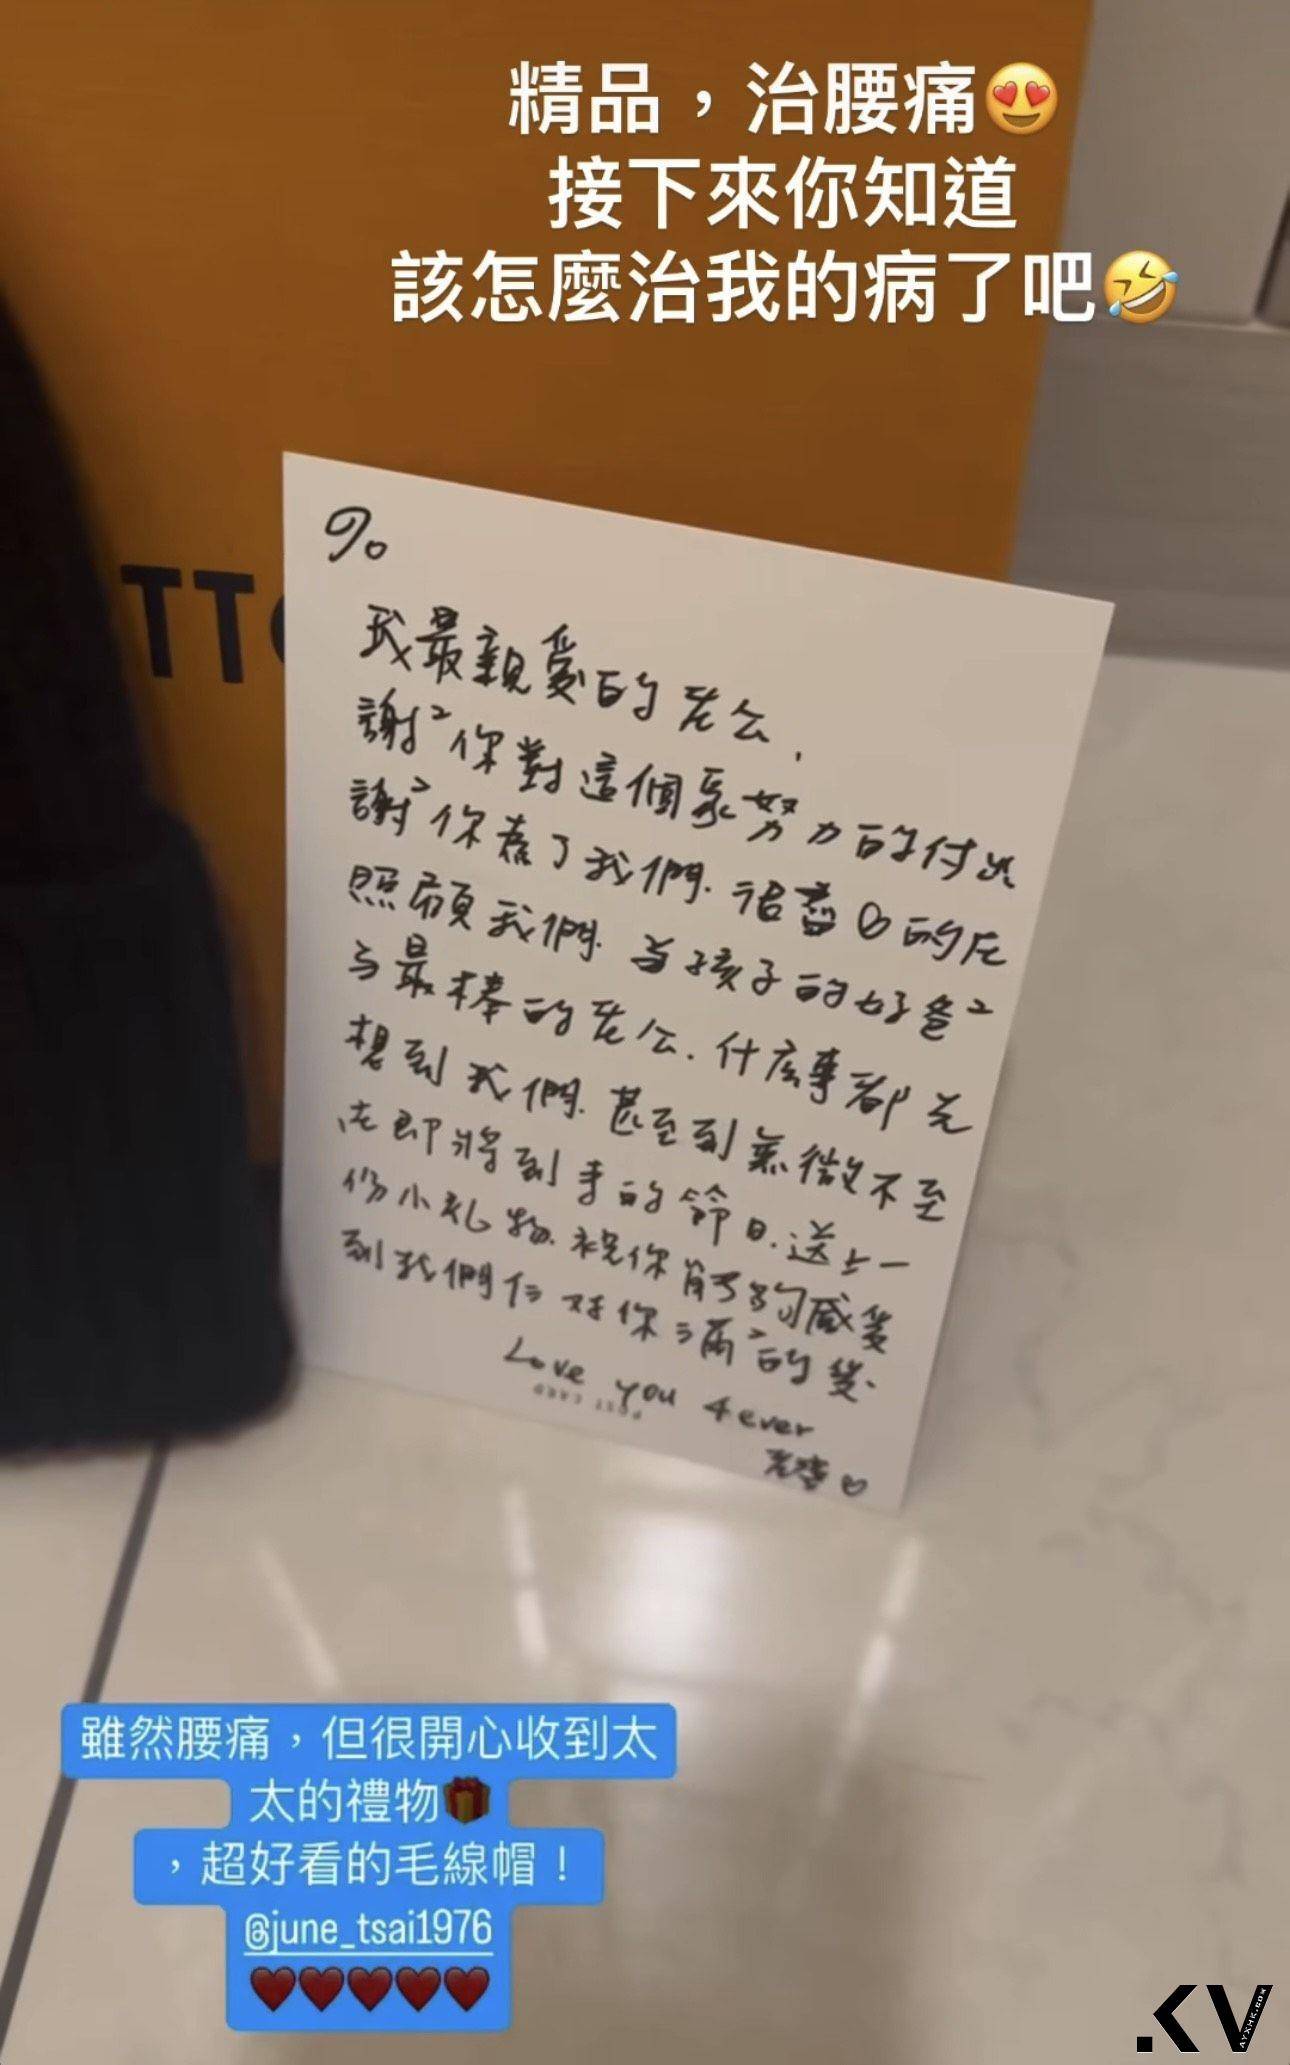 精品，治腰痛😍
接下來你知道
該怎麼治我的病了吧🤣
TTO
To
我最親愛的老公，
謝²你對這個家努力的付出
謝²你為了我們．竭盡心的在
照顧我們．當孩子的好爸²
与最棒的老公．什麼事都先
想到我們．甚至到無微不至
在即將到來的節日．送上一
份小礼物．祝你能夠感受
到我們仨对你滿²的愛．
Love you 4ever
POST CARD
老婆♡
雖然腰痛，但很開心收到太
太的禮物🎁
，超好看的毛線帽！
@june_tsai1976
❤️❤️❤️❤️❤️
.KV
AYXHK.COM